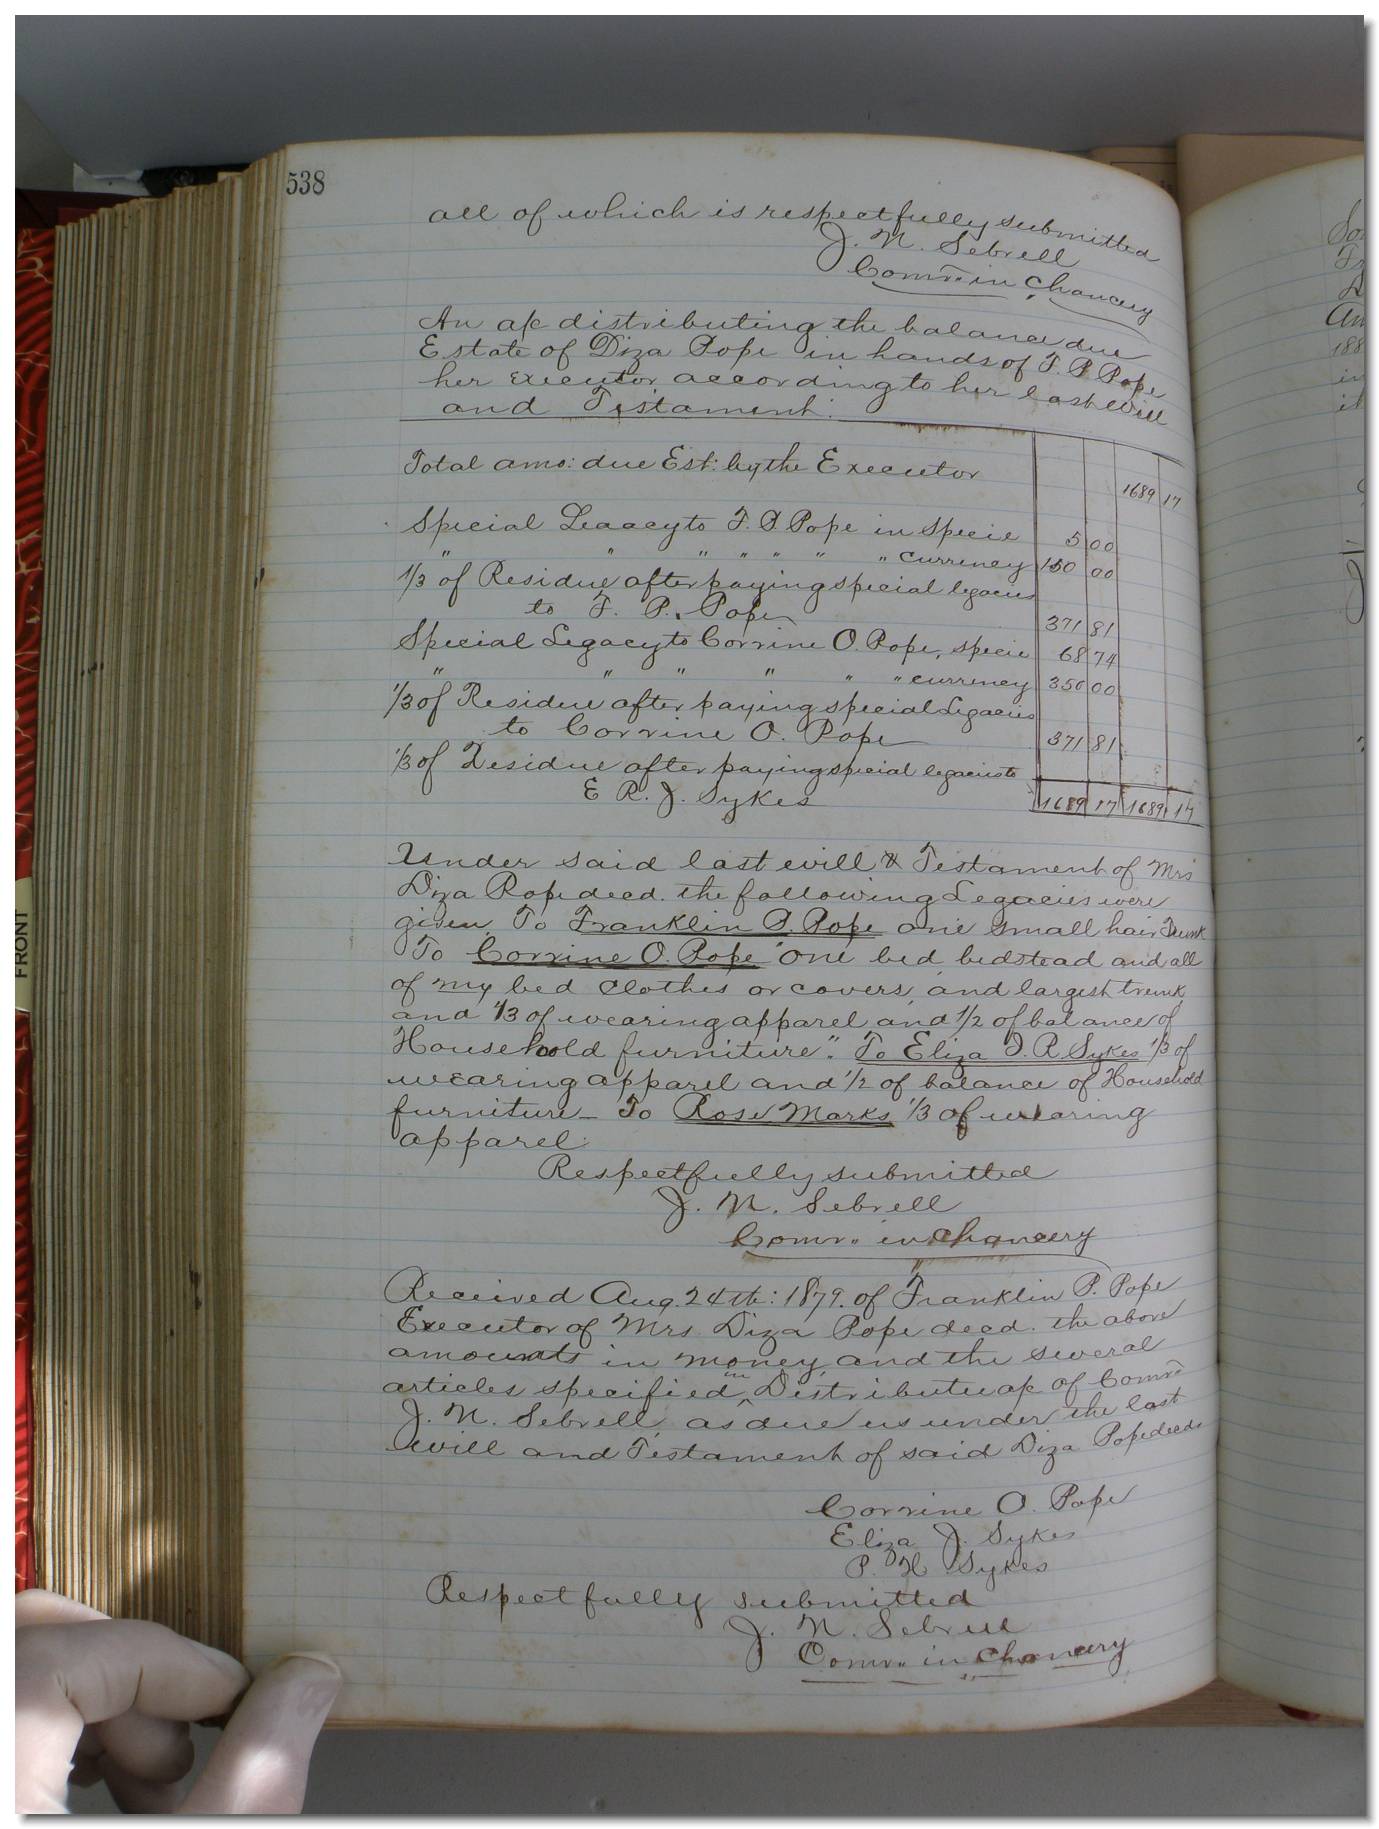 538
all of which is respectfully submitted
J. N. Sebrell
Comr. in Chancery
An a/c distributing the balance due
Estate of Diza Pope in hands of F. P. Pope
her executor according to her last Will
and Testament.
Total amo: due Est: by the Executor 1689 17
Special Legacy to F. P. Pope in Specie 5 00
" " " " " " " currency 150 00
1/3 of Residue after paying special legacies
to F. P. Pope 371 81
Special Legacy to Corrine O. Pope, specie 68 74
" " " " " " currency 350 00
1/3 of Residue after paying special Legacies
to Corrine O. Pope 371 81
1/3 of Residue after paying special legacies to
E R. J. Sykes
1689 17 1689 17
Under said last will & Testament of Mrs
Diza Pope decd. the following Legacies were
given. To Franklin P. Pope one small hair Trunk
To Corrine O. Pope "One bed, bedstead and all
of my bed clothes or covers, and largest trunk
and 1/3 of wearing apparel and 1/2 of balance of
Household furniture". To Eliza J. R. Sykes 1/3 of
wearing apparel and 1/2 of balance of Household
furniture - To Rose Marks 1/3 of wearing
apparel.
Respectfully submitted
J. N. Sebrell
Comr. in Chancery
Received Aug. 24th: 1879. of Franklin P. Pope
Executor of Mrs Diza Pope decd. the above
amounts in money, and the several
articles specified in Distribute a/c of Comr
J. N. Sebrell, as due us under the last
will and Testament of said Diza Pope decd.
Corrine O. Pope
Eliza J. Sykes
P. H. Sykes
Respectfully submitted
J. N. Sebrell
Comr. in Chancery
FRONT